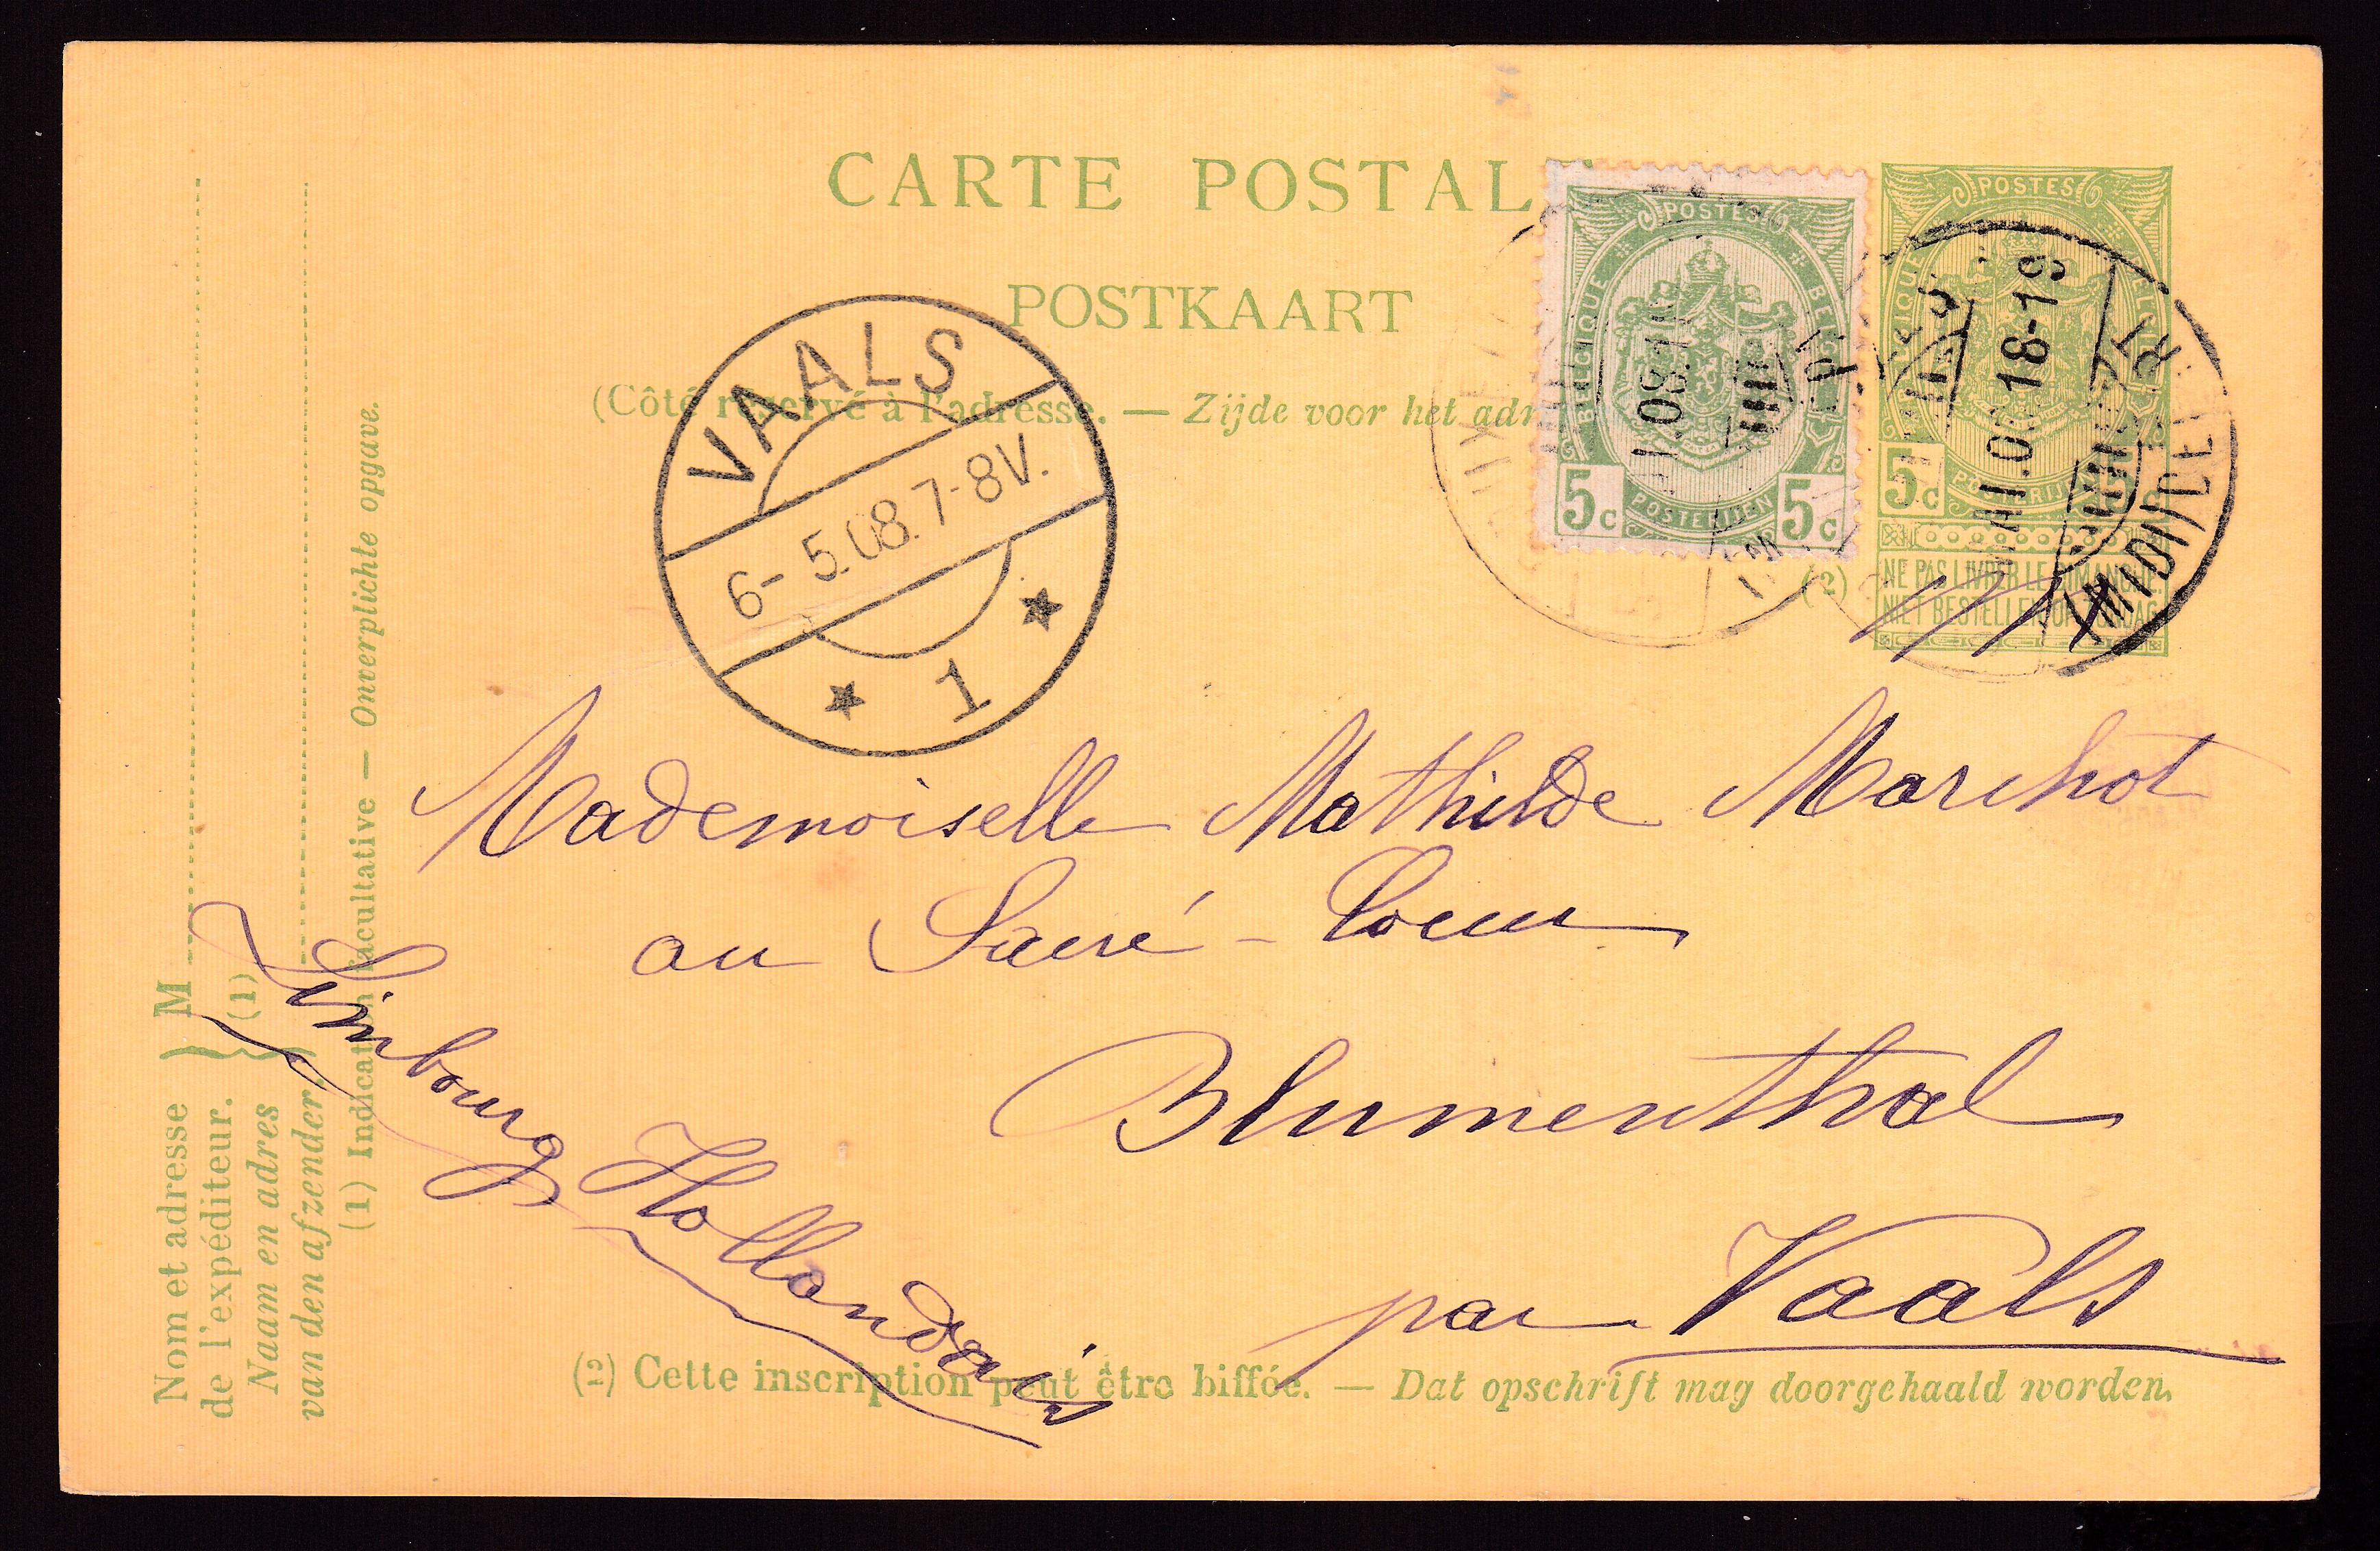 CARTE POSTAL
POSTKAART
(Côté réservé à l'adresse. — Zijde voor het adr
POSTES
BELGIQUE BELG
5c POSTERIJEN 5c
POSTES
5c POSTERIJEN 5c
(2) NE PAS LIVRER LE DIMANCHE
NIET BESTELLEN OP ZONDAG
08
18-19
MIDI
VAALS
6-5.08.7-8V.
1
Mademoiselle Mathilde Marchot
au Sacré-Coeur
Blumenthal
par Vaals
Limbourg Hollandais
(2) Cette inscription peut être biffée. — Dat opschrift mag doorgehaald worden.
Nom et adresse
de l'expéditeur.
Naam en adres
van den afzender.
M
(1)
(1) Indication facultative — Onverplichte opgave.